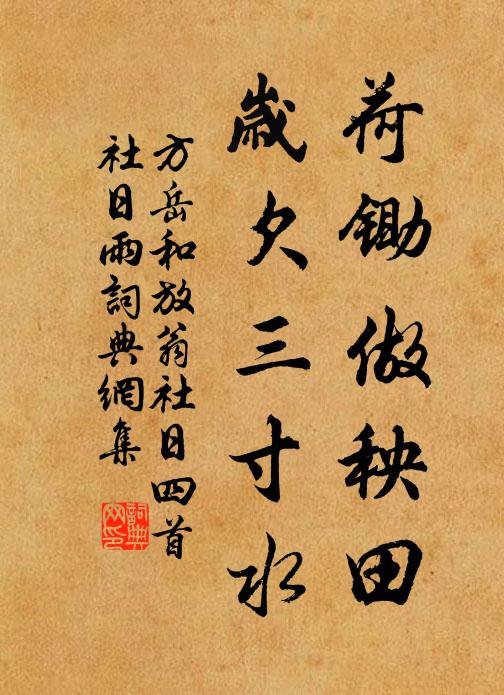 荷鋤做秧田
歲欠三寸水
方岳和放翁社日四首
社日雨詞典網集
詞典网印